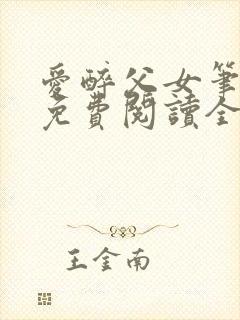 愛醉父女筆
免費閱讀全
王金南